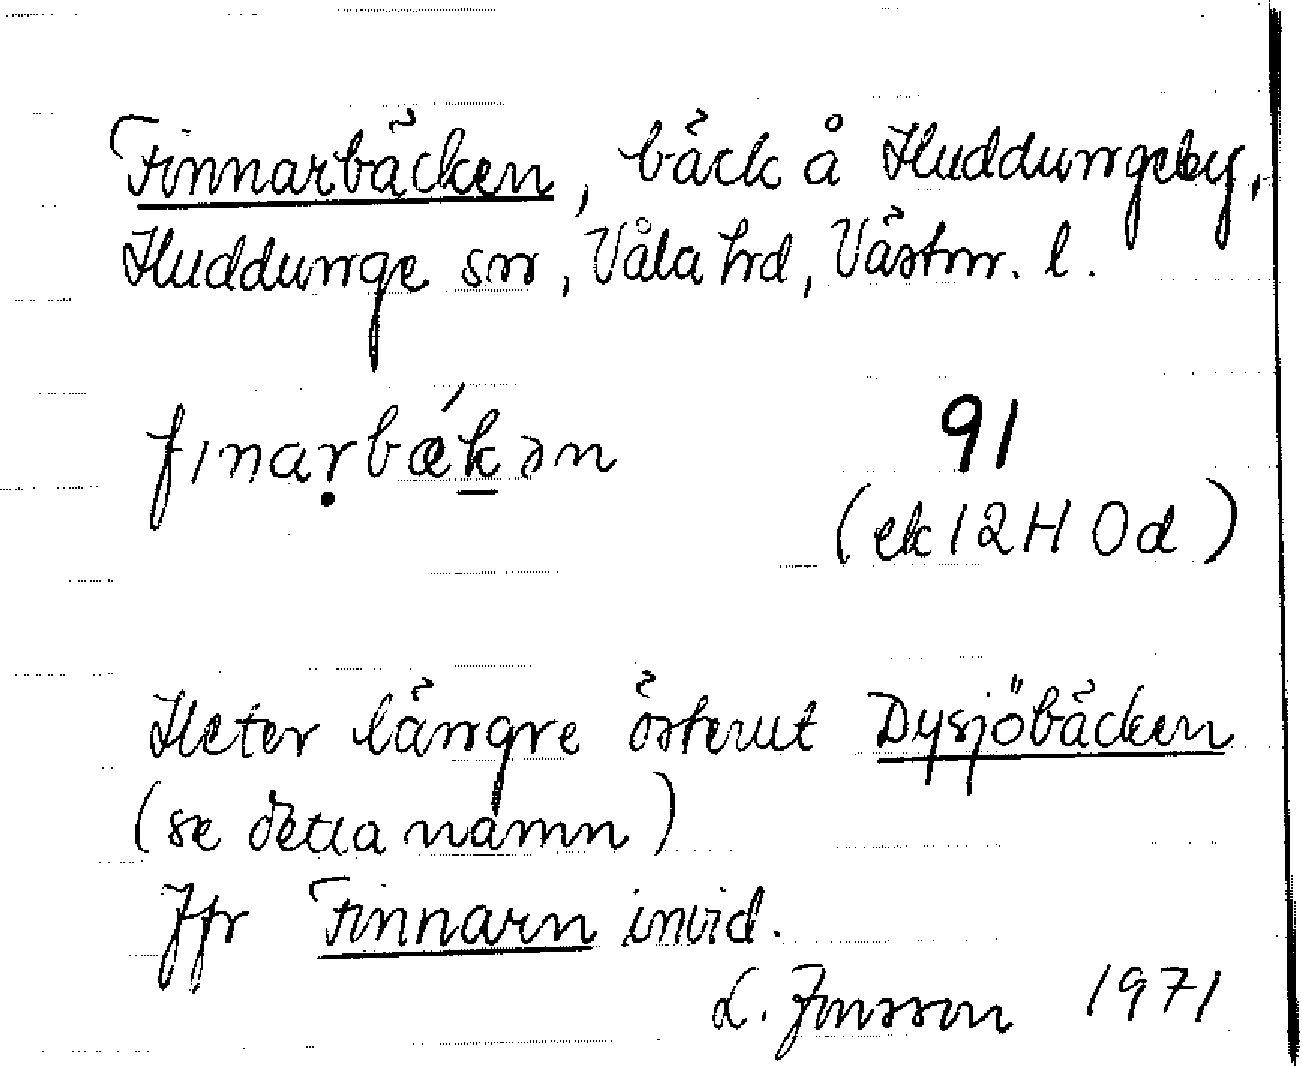 Finnarbäcken, bäck å Huddungeby,
Huddunge sn, Våla hd, Västm. l.
fɪnaṛbǽk̲ən
91
(ek 12H 0d)
Heter längre österut Dysjöbäcken
(se detta namn)
Jfr Finnarn invid.
L. Jonsson 1971